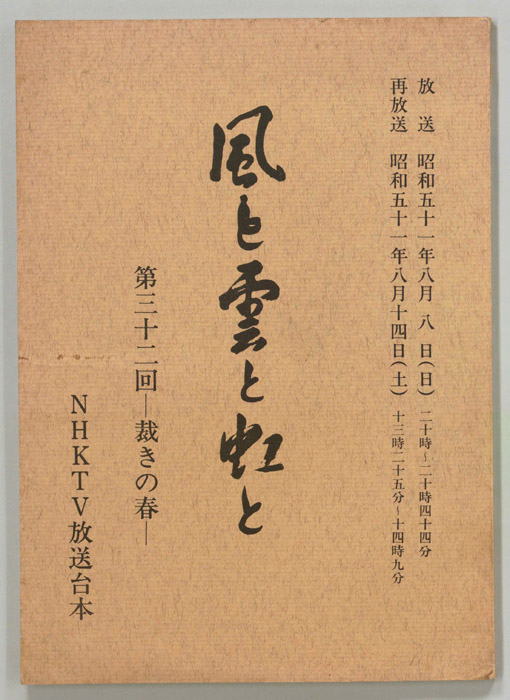 放　送　昭和五十一年八月 八 日(日) 二十時～二十時四十四分
再放送　昭和五十一年八月十四日(土) 十三時二十五分～十四時九分
風と雲と虹と
第三十二回―裁きの春―
NHKTV放送台本